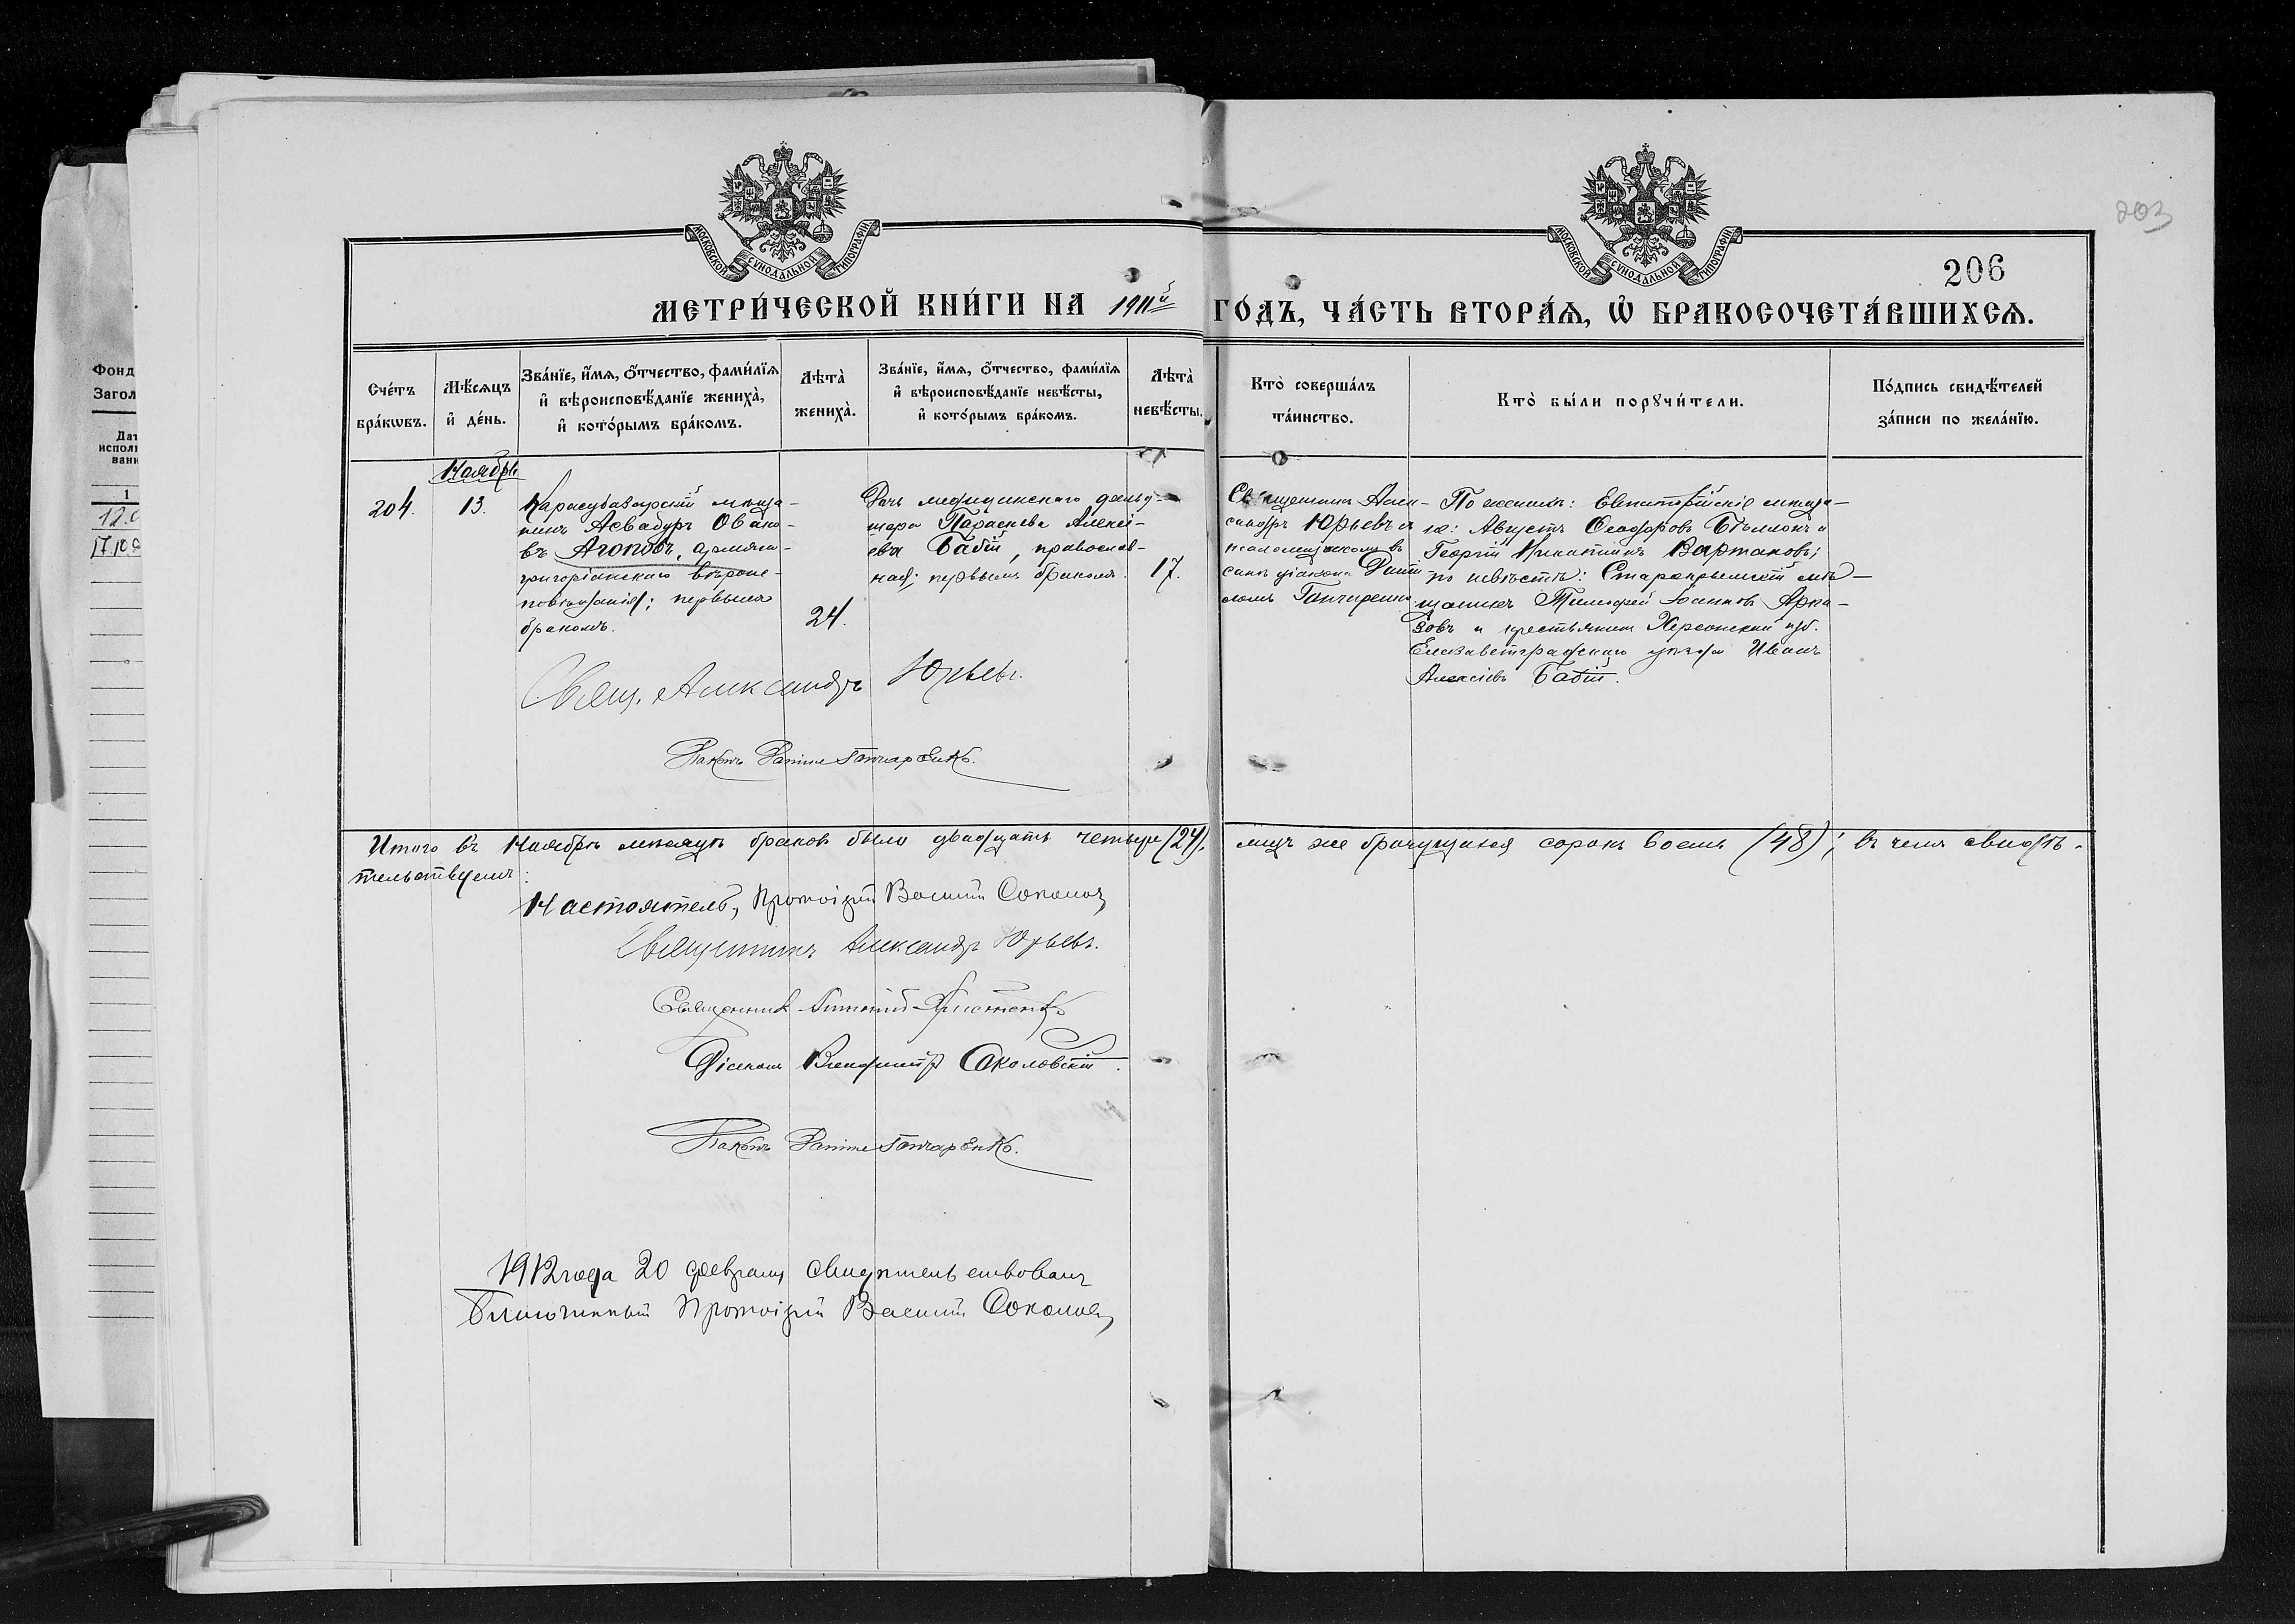 203
206
МОСКОВСКОЙ СѴНОДАЛЬНОЙ ТИПОГРАФІИ
МОСКОВСКОЙ СѴНОДАЛЬНОЙ ТИПОГРАФІИ
МЕТРИ́ЧЕСКОЙ КНИ́ГИ НА 1911й ГО́ДЪ, ЧА́СТЬ ВТОРА́Я, Ѡ҆ БРАКОСОЧЕТА́ВШИХСЯ.
Сче́тъ
бра́кѡвъ.
Мѣ́сяцъ
и҆ де́нь.
Зва́нїе, и҆́мя, ѻ҆́тчество, фами́лїя
и҆ вѣроисповѣ́данїе жениха̀,
и҆ кото́рымъ бра́комъ.
Лѣта̀
жениха̀.
Зва́нїе, и҆́мя, ѻ҆́тчество, фами́лїя
и҆ вѣроисповѣ́данїе невѣ́сты,
и҆ кото́рымъ бра́комъ.
Лѣта̀
невѣ́сты.
Кто̀ соверша́лъ
та́инство.
Кто̀ бы́ли порꙋчи́тели.
По́дпись свидѣ́телей
за́писи по жела́нїю.
Ноябрь
204.
13.
Карасубазарскій мѣща-
нинъ Асвадуръ Овако-
въ Агоповъ, армяно-
григоріанскаго вѣроис-
повѣданія; первымъ
бракомъ.
24.
Дочь медицинскаго фельд-
шера Параскева Алексі-
ева Бабій, православ-
ная; первымъ бракомъ.
17.
Священникъ Алек-
сандръ Юрьевъ съ
псаломщикомъ въ
санѣ діакона Дани-
ломъ Гончаренко
По женихѣ: Евпаторійскіе мѣща-
не: Августъ Ѳеодоровъ и
Георгій Никитинъ Вартановъ;
по невѣстѣ: Старокрымскій мѣ-
щанинъ Тимофей Іоанновъ Арна-
зовъ и крестьянинъ Херсонской губ.
Елисаветградскаго уѣзда Иванъ
Алексіевъ Бабій.
Свящ. Александръ Юрьевъ.
Діаконъ Данилъ Гончаренко.
Итого въ Ноябрѣ мѣсяцѣ браковъ было двадцать четыре (24), лицъ же брачущихся сорокъ восемь (48); въ чемъ свидѣ-
тельствуемъ:
Настоятель, Протоіерей Василій Соколовъ
Священникъ Александръ Юрьевъ.
Священникъ
Діаконъ Соколовскій.
Діаконъ Данилъ Гончаренко.
1912 года 20 февраля свидѣтельствовалъ
Благочинный Протоіерей Василій Соколовъ
Фонд
Загол
Дат
исполь
вани
1